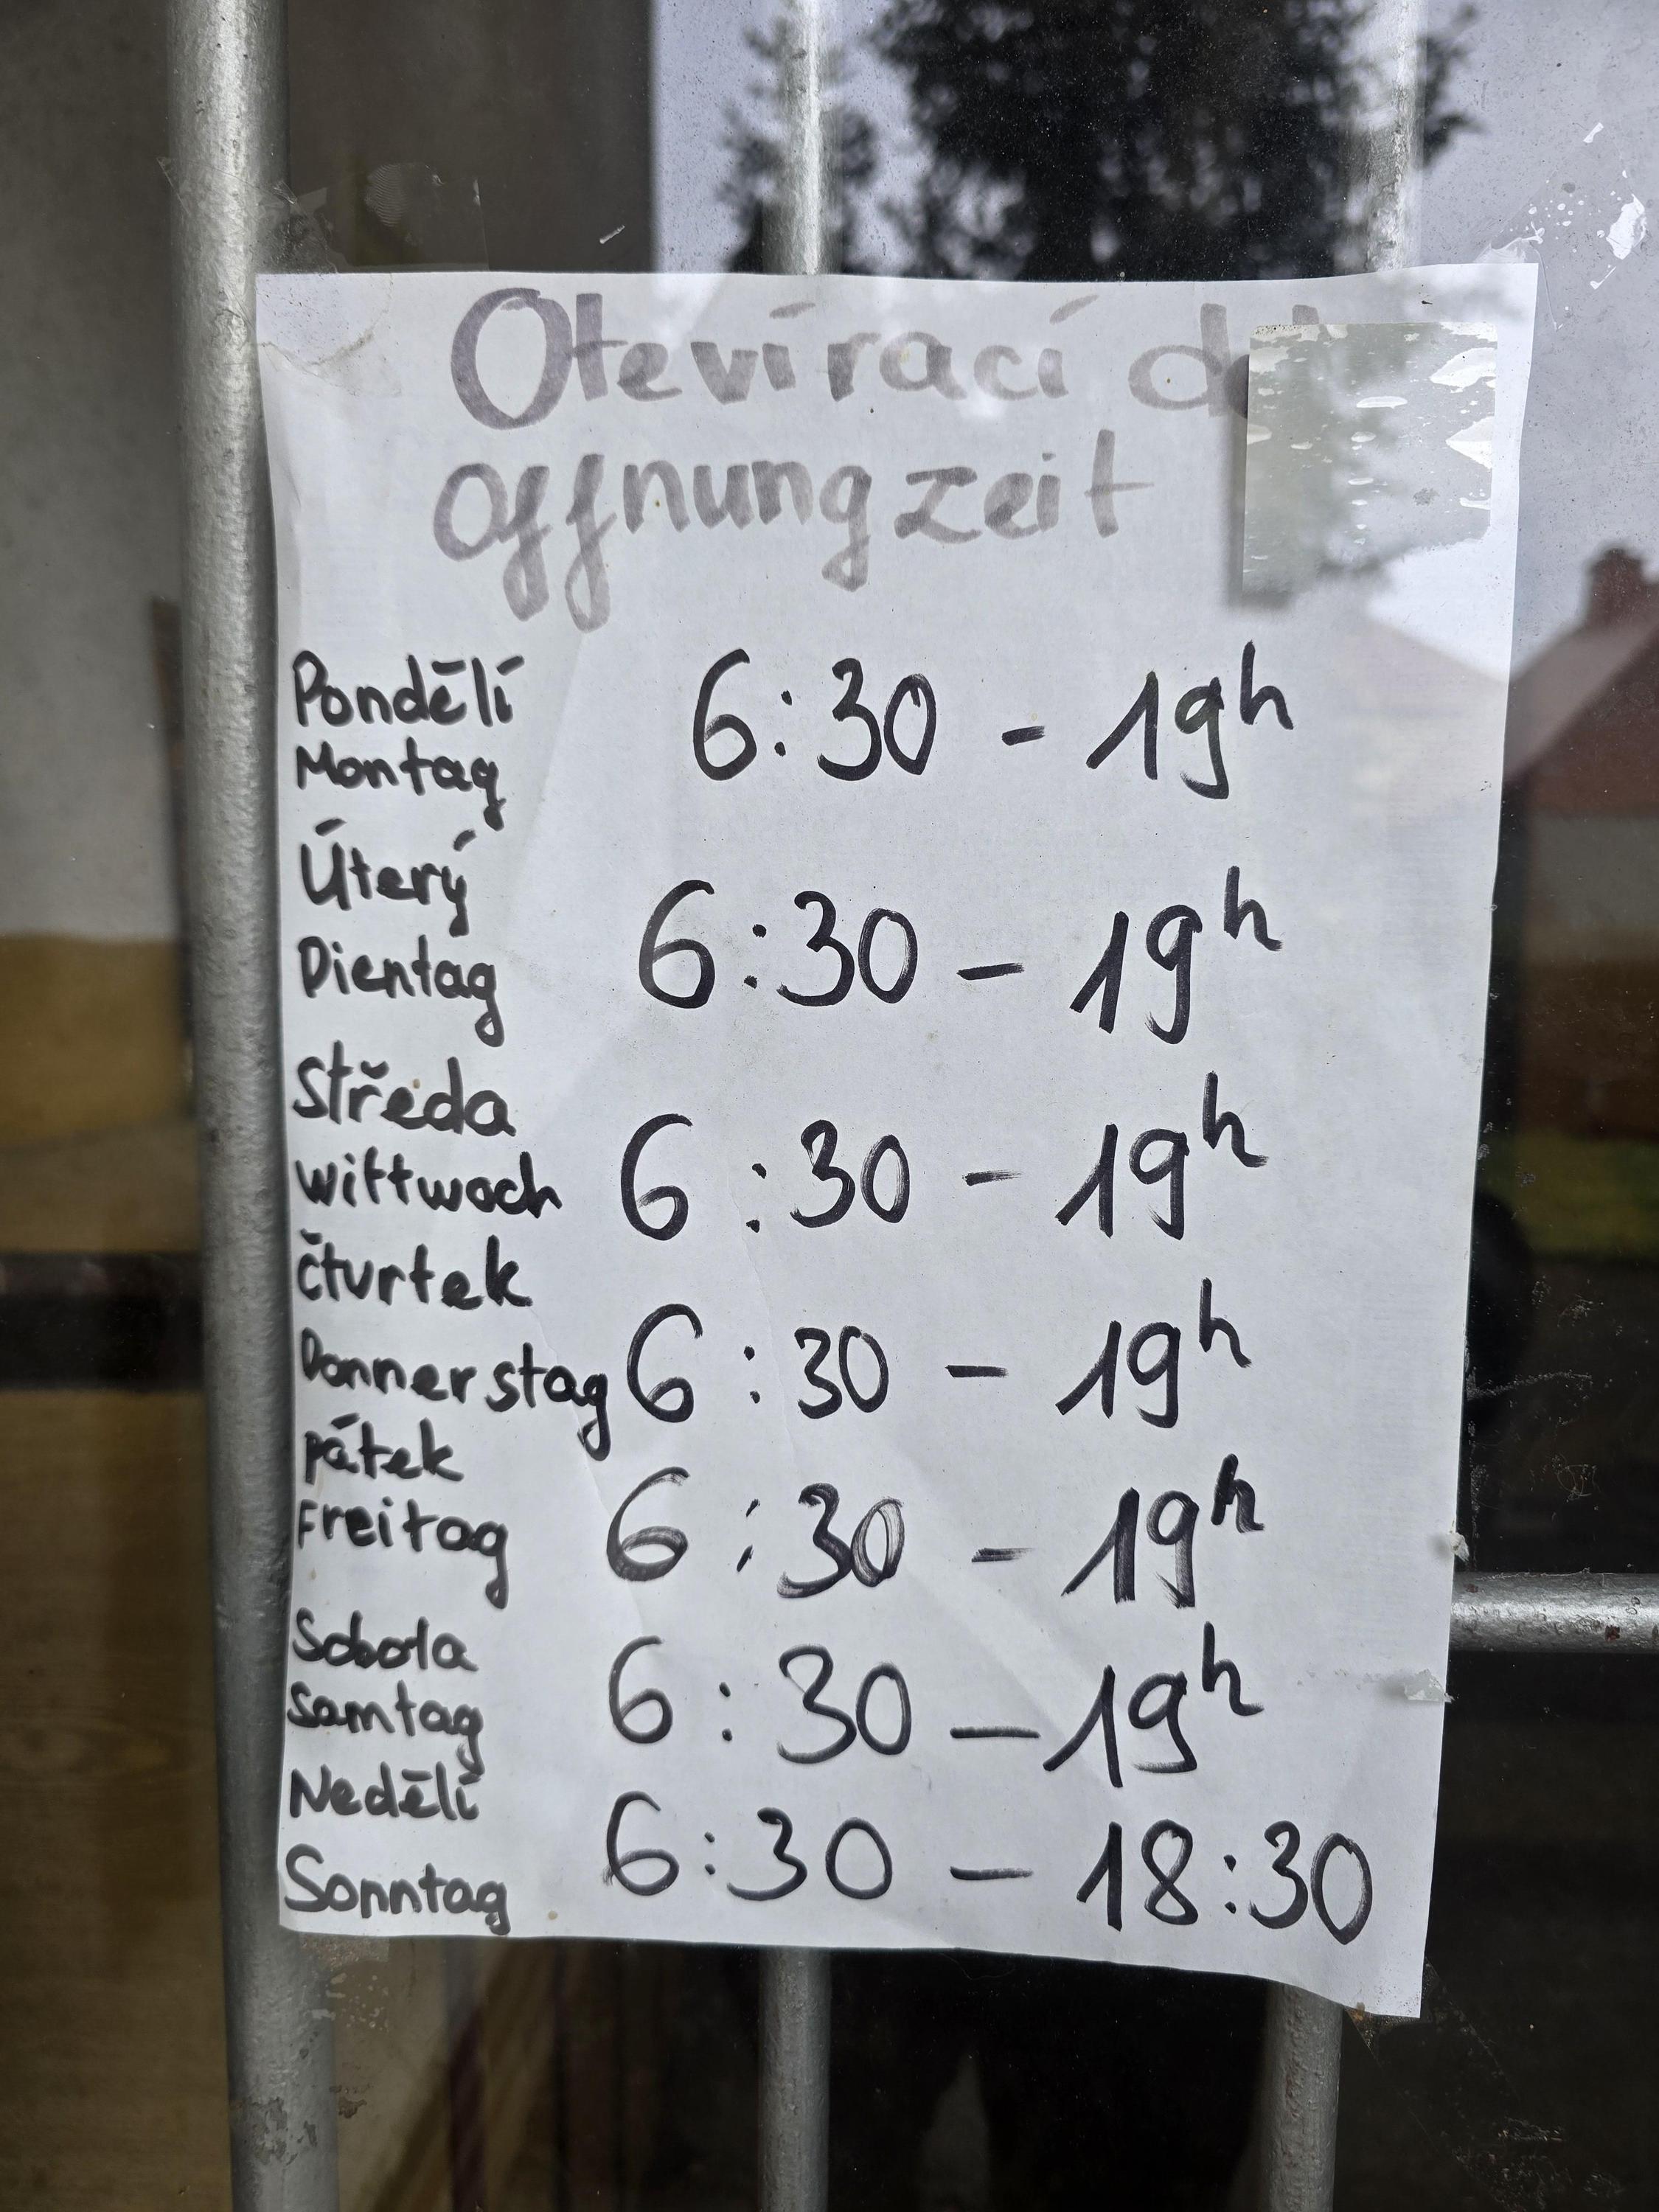 Otevírací d
Offnungzeit
Pondělí
Montag
6:30 - 19h
Úterý
Dientag
6:30 - 19h
Středa
Wittwoch
6:30 - 19h
čtvrtek
Donnerstag
6:30 - 19h
pátek
Freitag
6:30 - 19h
Sobota
Samtag
6:30 - 19h
Nedělí
Sonntag
6:30 - 18:30